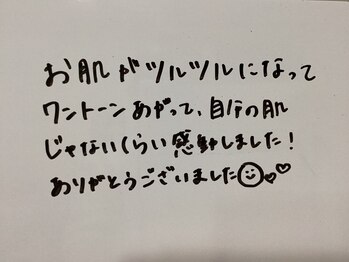 お肌がツルツルになって
ワントーンあがって、自分の肌
じゃないくらい感動しました!
ありがとうございました☺♥♡